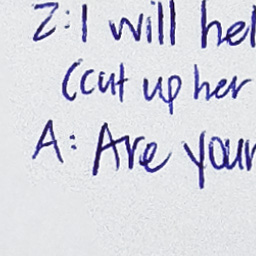 Z: I will hel
(cut up her
A: Are your